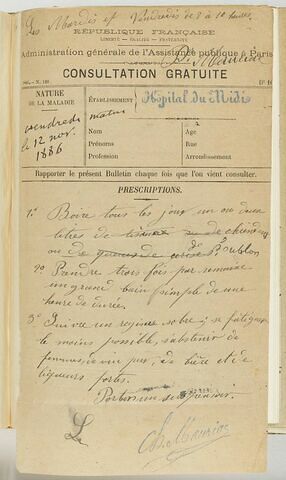 Les Mardis et Vendredis de 8 à 10 heures
RÉPUBLIQUE FRANÇAISE
LIBERTÉ — ÉGALITÉ — FRATERNITÉ
Administration générale de l'Assistance publique à Paris
Dr Mauriac
CONSULTATION GRATUITE
NATURE
DE LA MALADIE
ÉTABLISSEMENT
Hôpital du Midi
vendredi
matin
le 12 nov.
1886
Nom
Âge
Prénoms
Rue
Profession
Arrondissement
Rapporter le présent Bulletin chaque fois que l'on vient consulter.
PRESCRIPTIONS.
1° Boire tous les jours un ou deux
litres de tisane de chiendent
ou de queues de cerise de houblon
2° Prendre trois fois par semaine
un grand bain simple de une
heure de durée.
3° Suivre un régime sobre; se fatiguer
le moins possible, s'abstenir de
femmes, de vin pur, de bière et de
liqueurs fortes.
Porter un suspensoir.
Ch. Mauriac